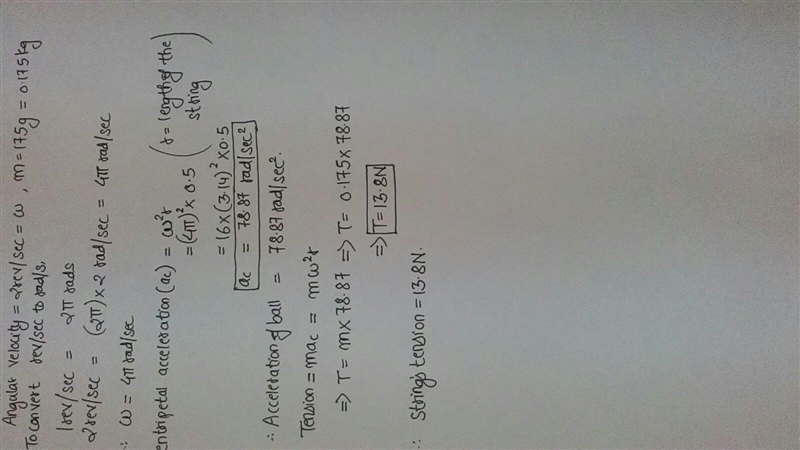 Angular velocity = 2rev/sec = ω , m = 175g = 0.175kg
To convert rev/sec to rad/s,
1rev/sec = 2π rads
2rev/sec = (2π)×2 rad/sec = 4π rad/sec
∴ ω = 4π rad/sec
entripetal acceleration (ac) = ω²r
= (4π)² × 0.5 (r = length of the string)
= 16×(3.14)² × 0.5
ac = 78.87 rad/sec²
∴ Acceleration of ball = 78.87 rad/sec².
Tension = mac = mω²r
=> T = m × 78.87 => T = 0.175 × 78.87
=> T = 13.8N
∴ String's tension = 13.8N.